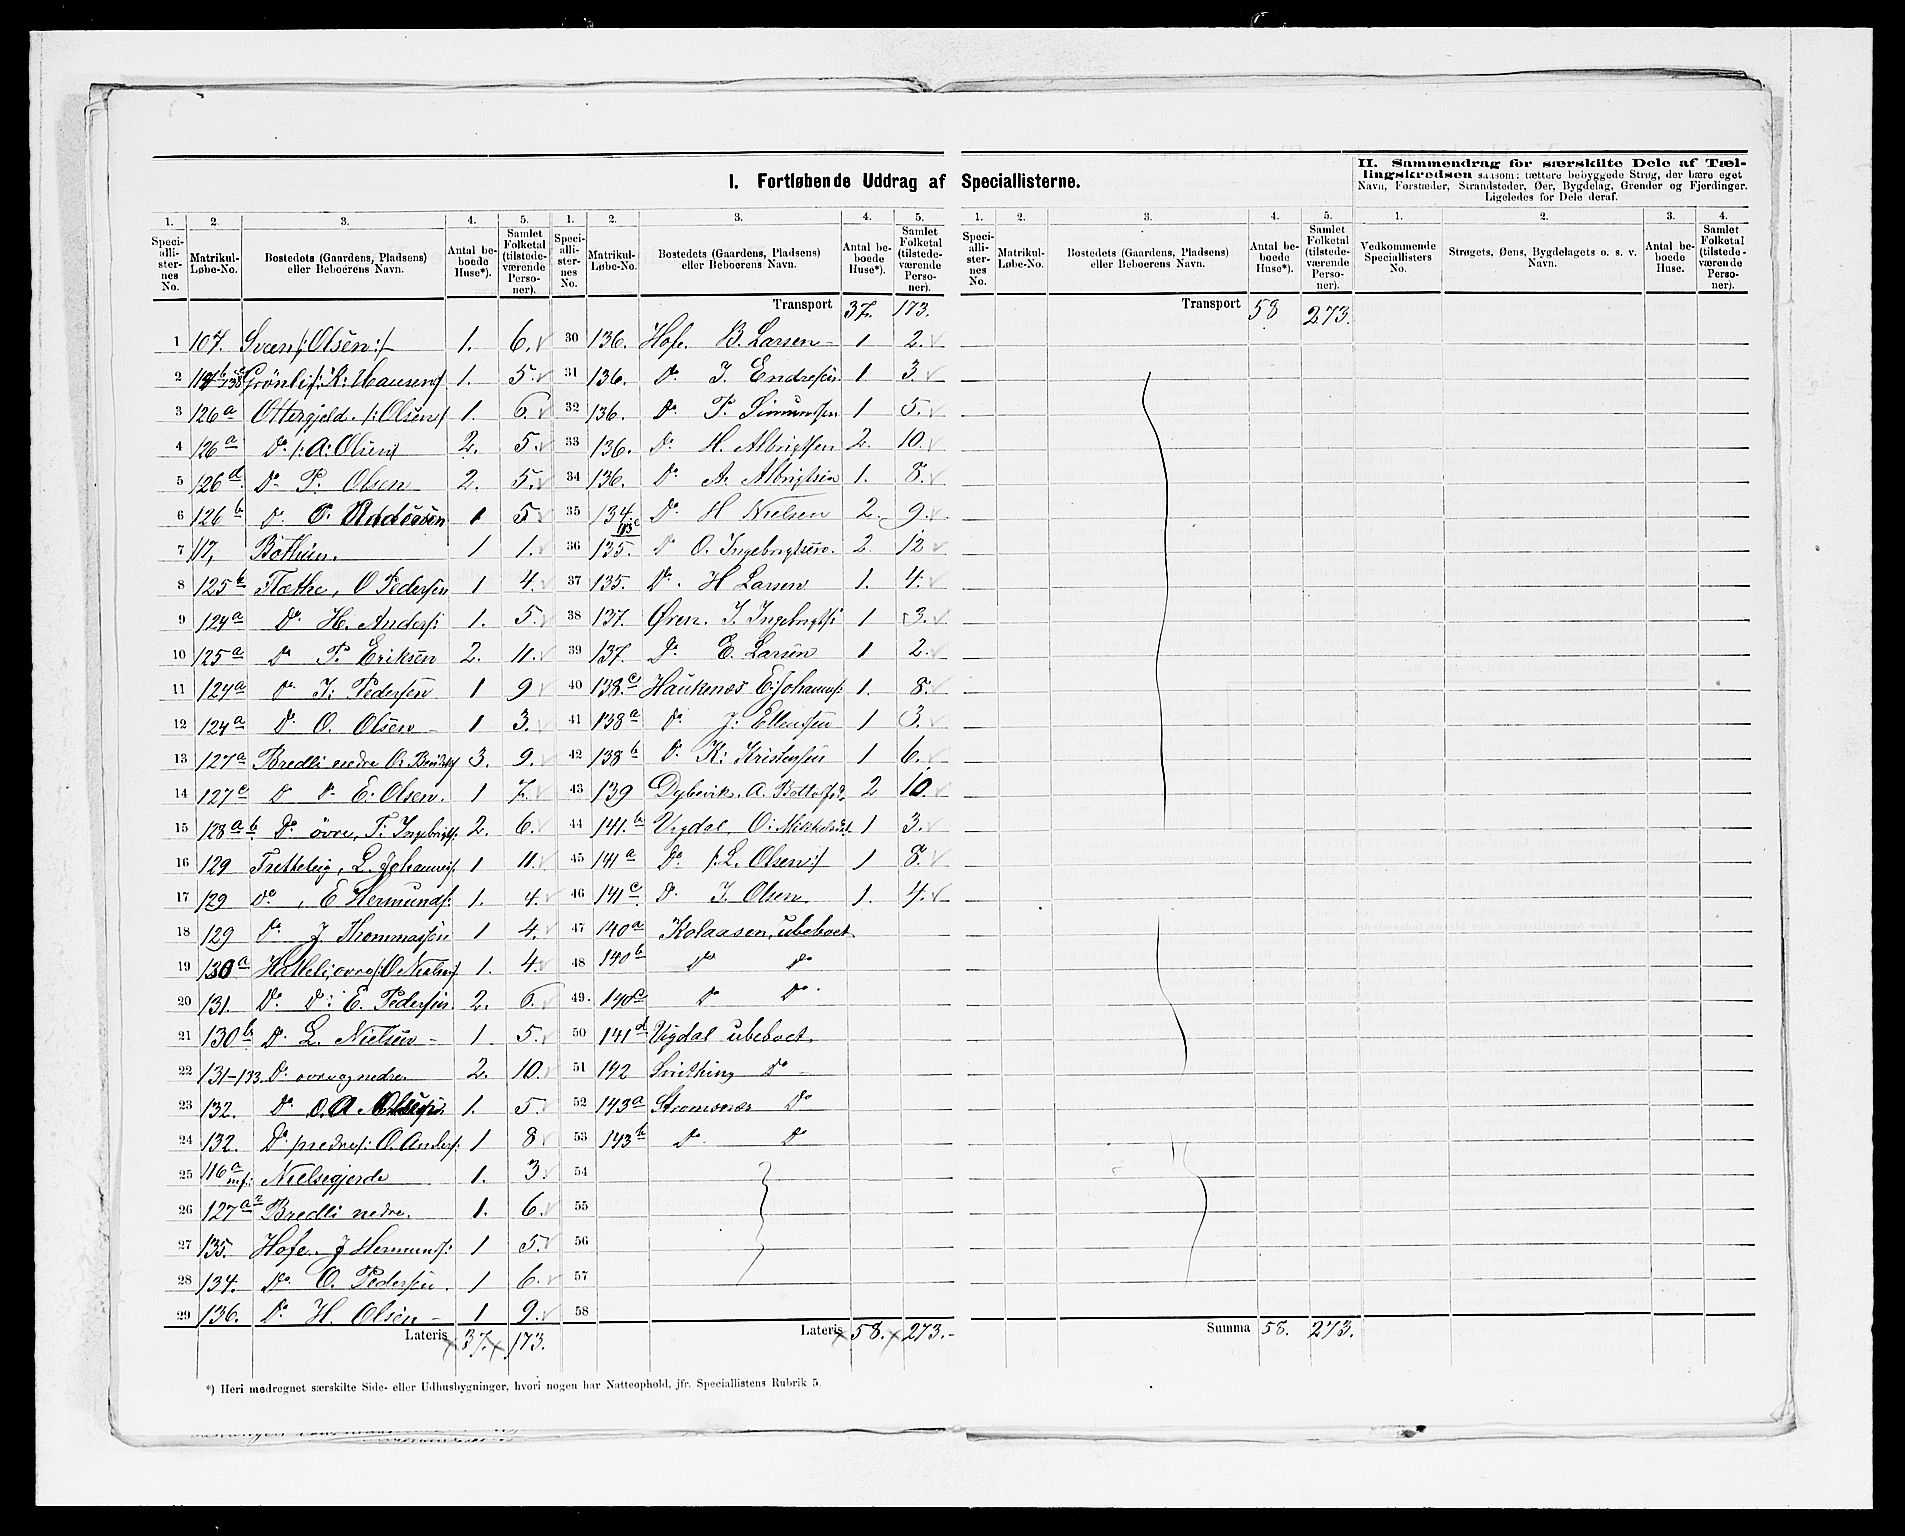 I. Fortløbende Uddrag af Speciallisterne.
II. Sammendrag for særskilte Dele af Tæl-
lingskredsen saasom: tættere bebyggede Strøg, der bære eget
Navn, Forstæder, Strandsteder, Øer, Bygdelag, Grender og Fjerdinger.
Ligeledes for Dele deraf.
1. 2. 3. 4. 5. 1. 2. 3. 4. 5. 1. 2. 3. 4. 5. 1. 2. 3. 4.
Speciallisternes No. Matrikul-Løbe-No. Bostedets (Gaardens, Pladsens) eller Beboerens Navn. Antal beboede Huse*). Samlet Folketal (tilstedeværende Personer).
Speciallisternes No. Matrikul-Løbe-No. Bostedets (Gaardens, Pladsens) eller Beboerens Navn. Antal beboede Huse*). Samlet Folketal (tilstedeværende Personer).
Speciallisternes No. Matrikul-Løbe-No. Bostedets (Gaardens, Pladsens) eller Beboerens Navn. Antal beboede Huse*). Samlet Folketal (tilstedeværende Personer).
Vedkommende Speciallisters No. Strøgets, Øens, Bygdelagets o. s. v. Navn. Antal beboede Huse. Samlet Folketal (tilstedeværende Personer).
1 107. Svæen /: Olsen :/ 1. 6.
2 Grönli /: K: Hansen :/ 1. 5.
3 126a Ottergjeld. /: Olsen :/ 1. 6.
4 126a Do /: A: Olsen :/ 2. 5.
5 126d Do P. Olsen 2. 5.
6 126b Do 1 5
7 117, Bothun. 1 1.
8 125b Flæthe, O Pedersen 1 4.
9 124a Do H. Anders: 1. 5.
10 125a Do P. Eriksen 2. 11.
11 124a Do I: Pedersen 1 9
12 124a Do O. Olsen 1 3.
13 127a Bredli nedre O: 3. 9.
14 127c D Do E: Olsen. 1 7.
15 128a b Do övre, T: Ingebrigts: 2. 6.
16 129 Tretteteig, L. Johannes: 1 11.
17 129 do, E Hermunds: 1. 4.
18 129 Do J Thommassen 1 4.
19 130a Hatleli övre /: O Nielsen :/ 1. 4.
20 131. Do D: E. Pedersen. 2. 6.
21 130b Do L. Nielsen 1. 5.
22 131-133. Do övre og nedre 2. 10.
23 132. Do 1. 5
24 132. Do nedre /: O. Anders: 1 8
25 116a Nielsegjerde 1. 3.
26 127a2 Bredli nedre. 1. 6.
27 135. Hofe. J Hermunds: 1 5.
28 134. Do O. Pedersen. 1 6.
29 136. Do H. Olsen 1 9.
Lateris 37. 173.
Transport 37. 173.
30 136. Hofe. B. Larsen 1 2.
31 136. Do I. Endresen 1 3.
32 136. Do P. Simunssen 1 5.
33 136. Do H. Albrigtsen 2. 10.
34 136. Do A. Albrigtsen 1. 8.
35 134. Do H Nielsen 2. 9.
36 135. Do O. Ingebrigtsen. 2. 12
37 135. Do. H Larsen 1. 4.
38 137. Øren. I. Ingebrigts: 1 3.
39 137. Do E. Larsen 1 2.
40 138.c Haukenæs E: Johannes: 1. 8.
41 138a Do J: Ellensen 1 3.
42 138b Do K: Kristensen 1 6.
43 139 Dybevik. A. 2 10.
44 141.b Vigdal, O: Mikkelsen 1 3.
45 141a Do /: L. Olsen :/ 1 8.
46 141c Do I. Olsen 1. 4.
47 140a Kolaasen, ubeboet.
48 140b Do Do
49. 140c D Do
50 141d Vigdal ubeboet.
51 142 Do
52 143a Stromsnæs Do
53 143b Do D
54
55
56
57
58
Lateris 58. 273.
Transport 58 273.
Summa 58. 273.
*) Heri medregnet særskilte Side- eller Udhusbygninger, hvori nogen har Natteophold, jfr. Speciallistens Rubrik 5.